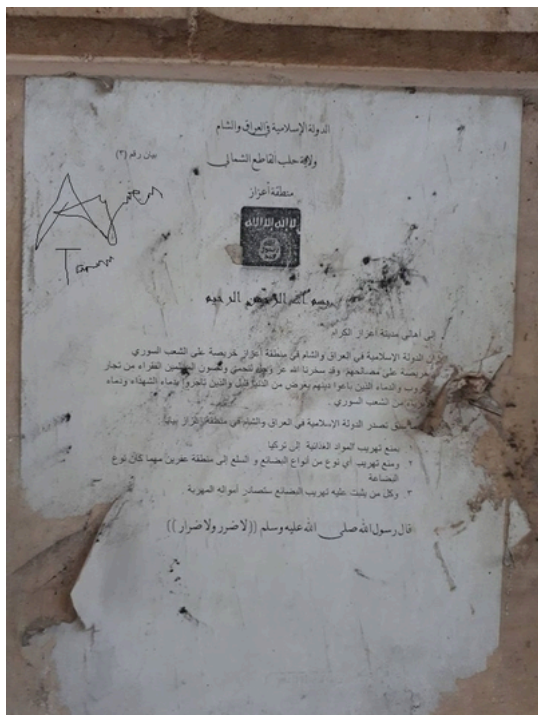 الدولة الإسلامية في العراق والشام
بيان رقم (٣)
ولاية حلب القاطع الشمالي
منطقة أعزاز
لا إله إلا الله
بسم الله الرحمن الرحيم
إلى أهالي مدينة أعزاز الكرام
إن الدولة الإسلامية في العراق والشام في منطقة أعزاز حريصة على الشعب السوري
حريصة على مصالحهم وقد سخرنا الله عز وجل لنحمي ونصون المسلمين الفقراء من تجار
الحروب والدماء الذين باعوا دينهم بعرض من الدنيا قليل والذين تاجروا بدماء الشهداء ودماء
من الشعب السوري
تصدر الدولة الإسلامية في العراق والشام في منطقة إعزاز بيانا
يمنع تهريب المواد الغذائية إلى تركيا
٢ ومنع تهريب أي نوع من أنواع البضائع و السلع إلى منطقة عفرين مهما كان نوع
البضاعة
٣ وكل من يثبت عليه تهريب البضائع ستصادر أمواله المهربة
قال رسول الله صلى الله عليه وسلم ((لا ضرر ولا ضرار))